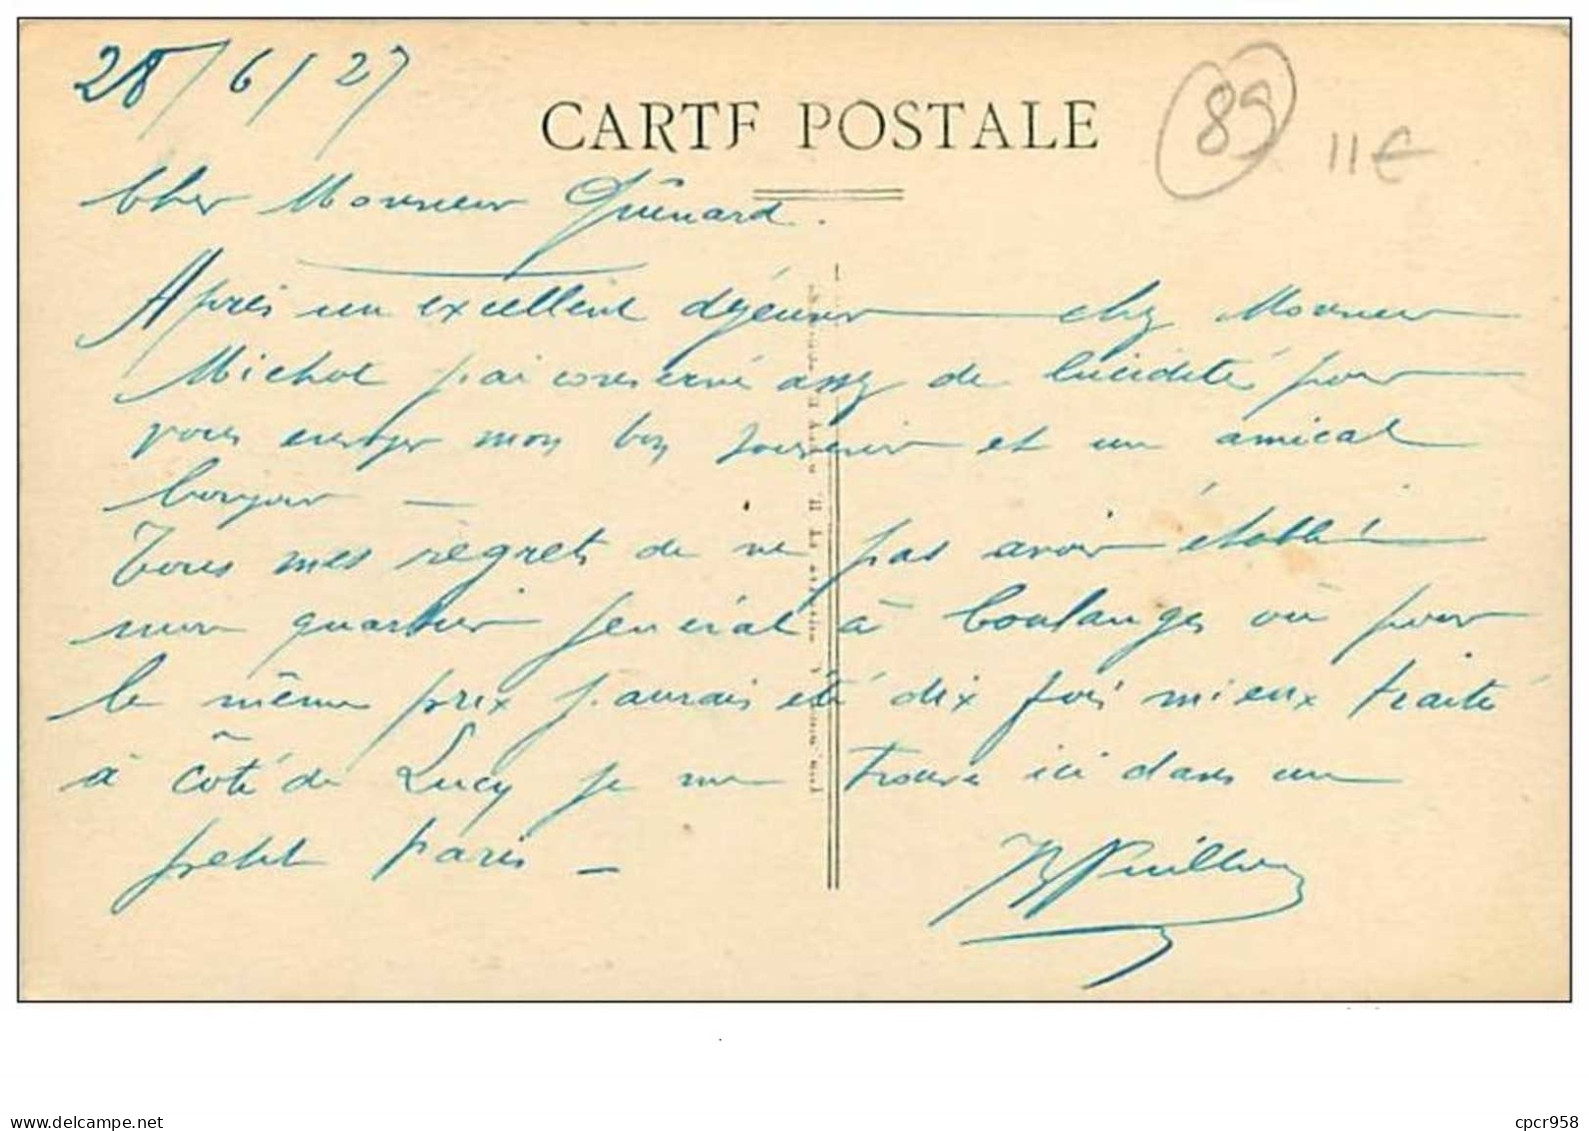 28/6/27
CARTE POSTALE
89
11€
Cher Monsieur Guénard.
Après un excellent déjeuner chez Monsieur
Michot j'ai conservé assez de lucidité pour
vous envoyer mon bon souvenir et un amical
bonjour —
Tous mes regrets de ne pas avoir établi
mon quartier général à Coulanges où pour
le même prix j'aurais été dix fois mieux traité
à côté de Lucy je me trouve ici dans un
petit Paris —
www.delcampe.net
cpcr958